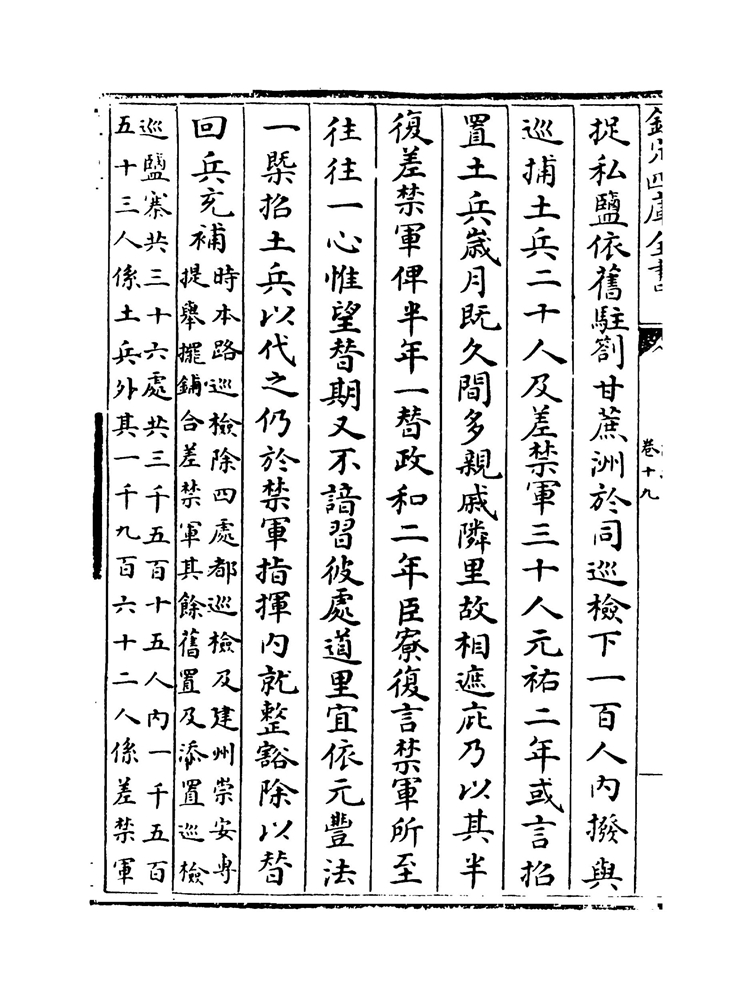 欽定四庫全書
卷十九
捉私鹽依舊駐劄甘蔗洲於同巡檢下一百人内撥與
巡捕土兵二十人及差禁軍三十人元祐二年或言招
置土兵歳月既久間多親戚隣里故相遮庇乃以其半
復差禁軍俾半年一替政和二年臣寮復言禁軍所至
往往一心惟望替期又不諳習彼處道里宜依元豐法
一槩招土兵以代之仍於禁軍指揮内就整豁除以替
回兵充補
時本路巡檢除四處都巡檢及建州崇安專
提舉擺鋪合差禁軍其餘舊置及添置巡檢
巡鹽寨共三十六處共三千五百十五人内一千五百
五十三人係土兵外其一千九百六十二人係差禁軍